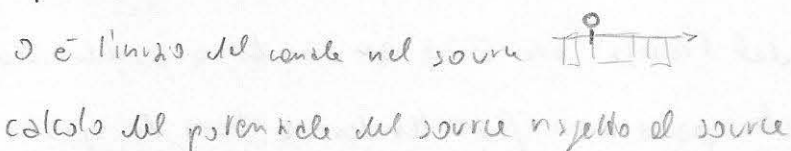 O è l'inizio del canale nel source
calcolo del potenziale del source rispetto al source